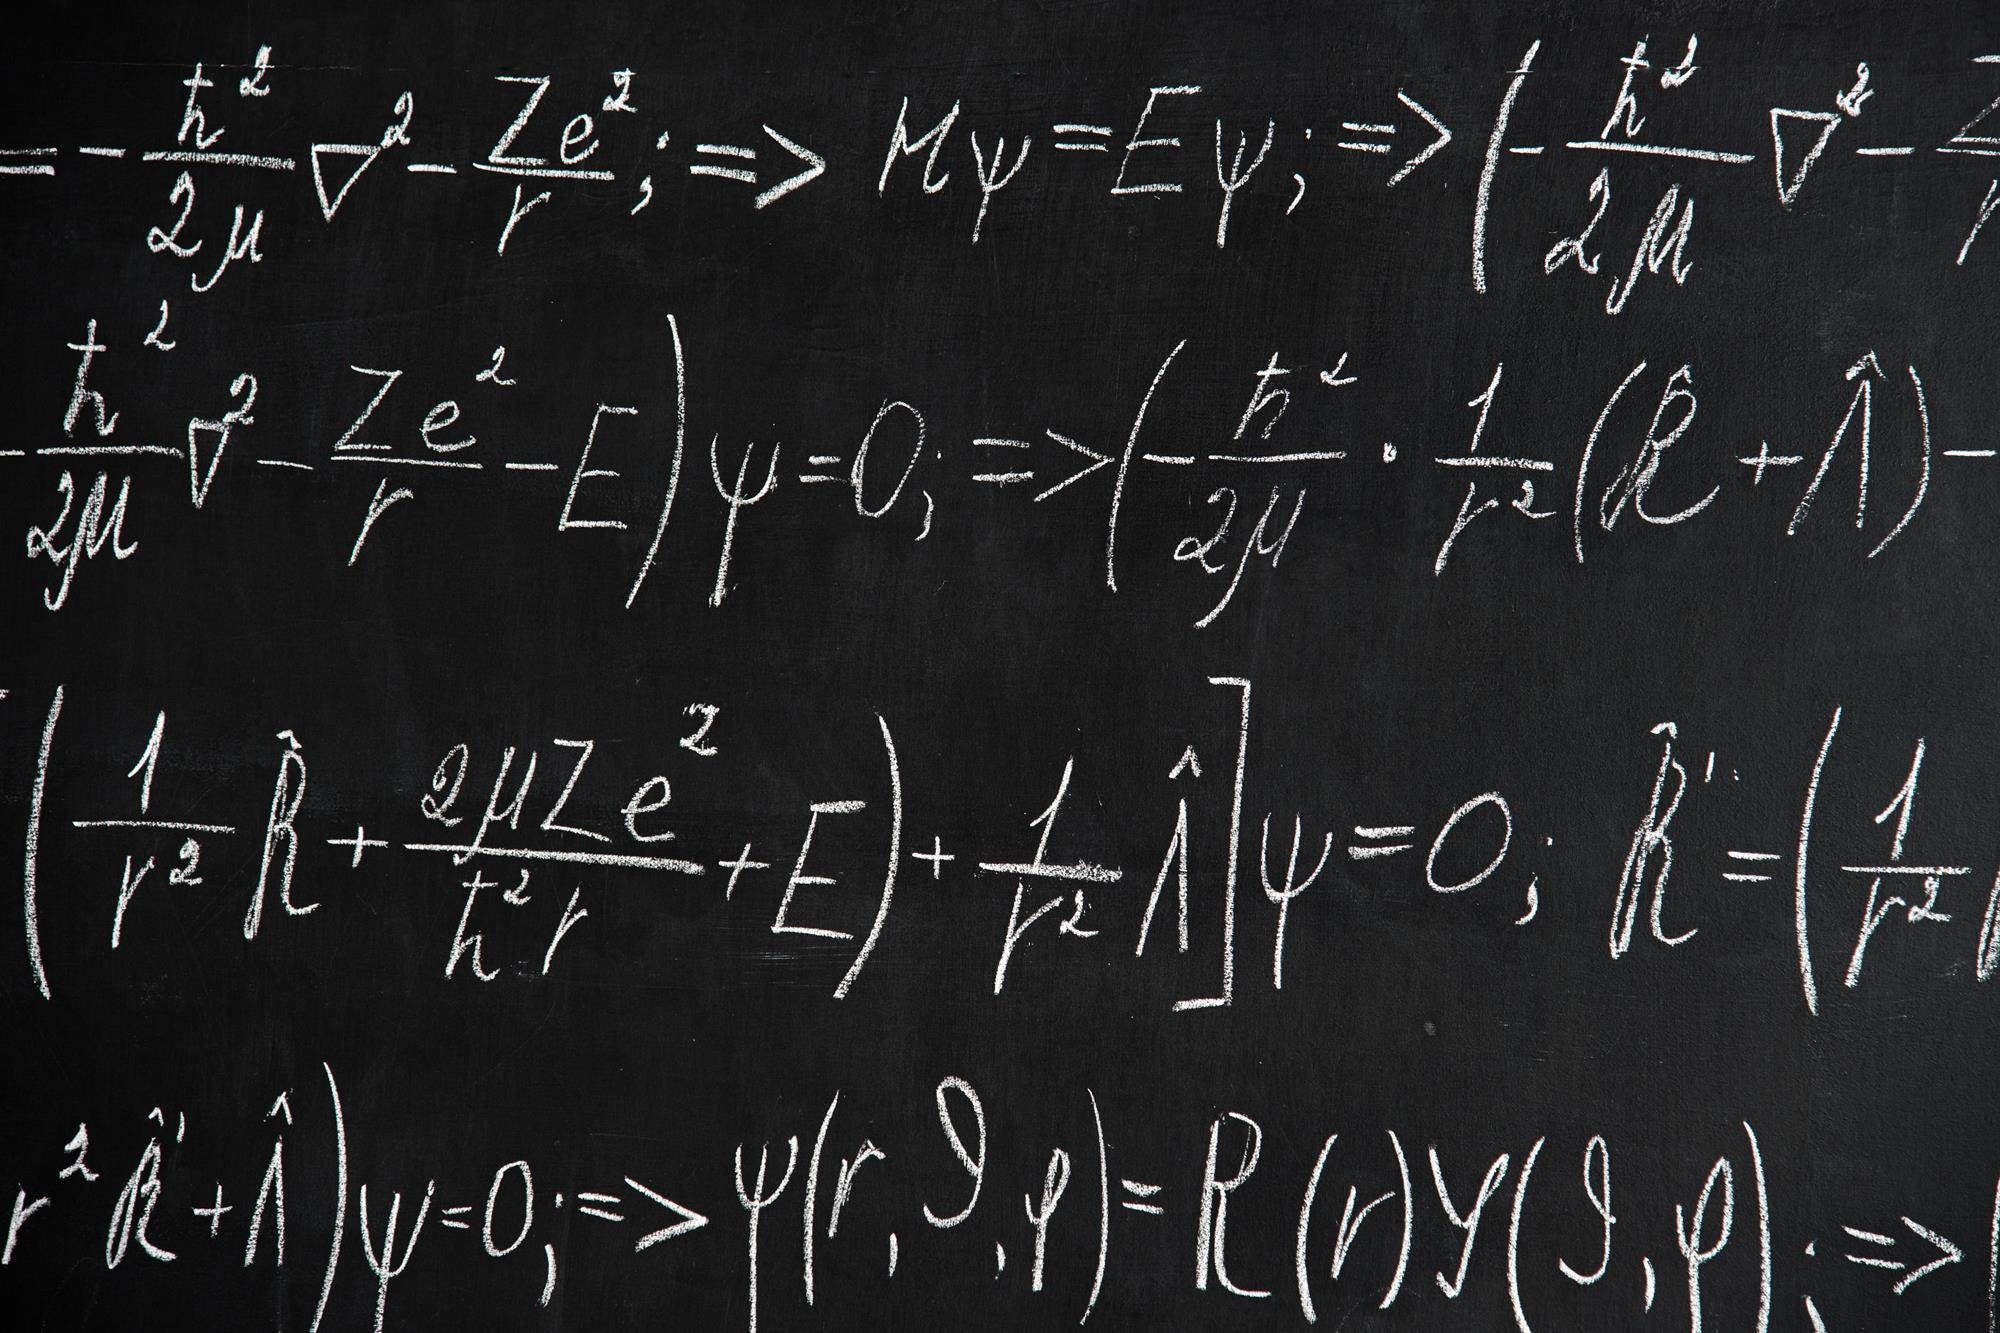 = - ħ²/2μ ∇² - Ze²/r ; => Hψ = Eψ ; => ( - ħ²/2μ ∇² - Z/r
- ħ²/2μ ∇² - Ze²/r - E ) ψ = 0 ; => ( - ħ²/2μ · 1/r² ( R̂ + Λ̂ ) -
( 1/r² R̂ + 2μZe²/ħ²r + E ) + 1/r² Λ̂ ] ψ = 0 ; R̂' = ( 1/r²
r² R̂' + Λ̂ ) ψ = 0 ; => ψ ( r , ϑ , φ ) = R ( r ) Y ( ϑ , φ ) ; =>